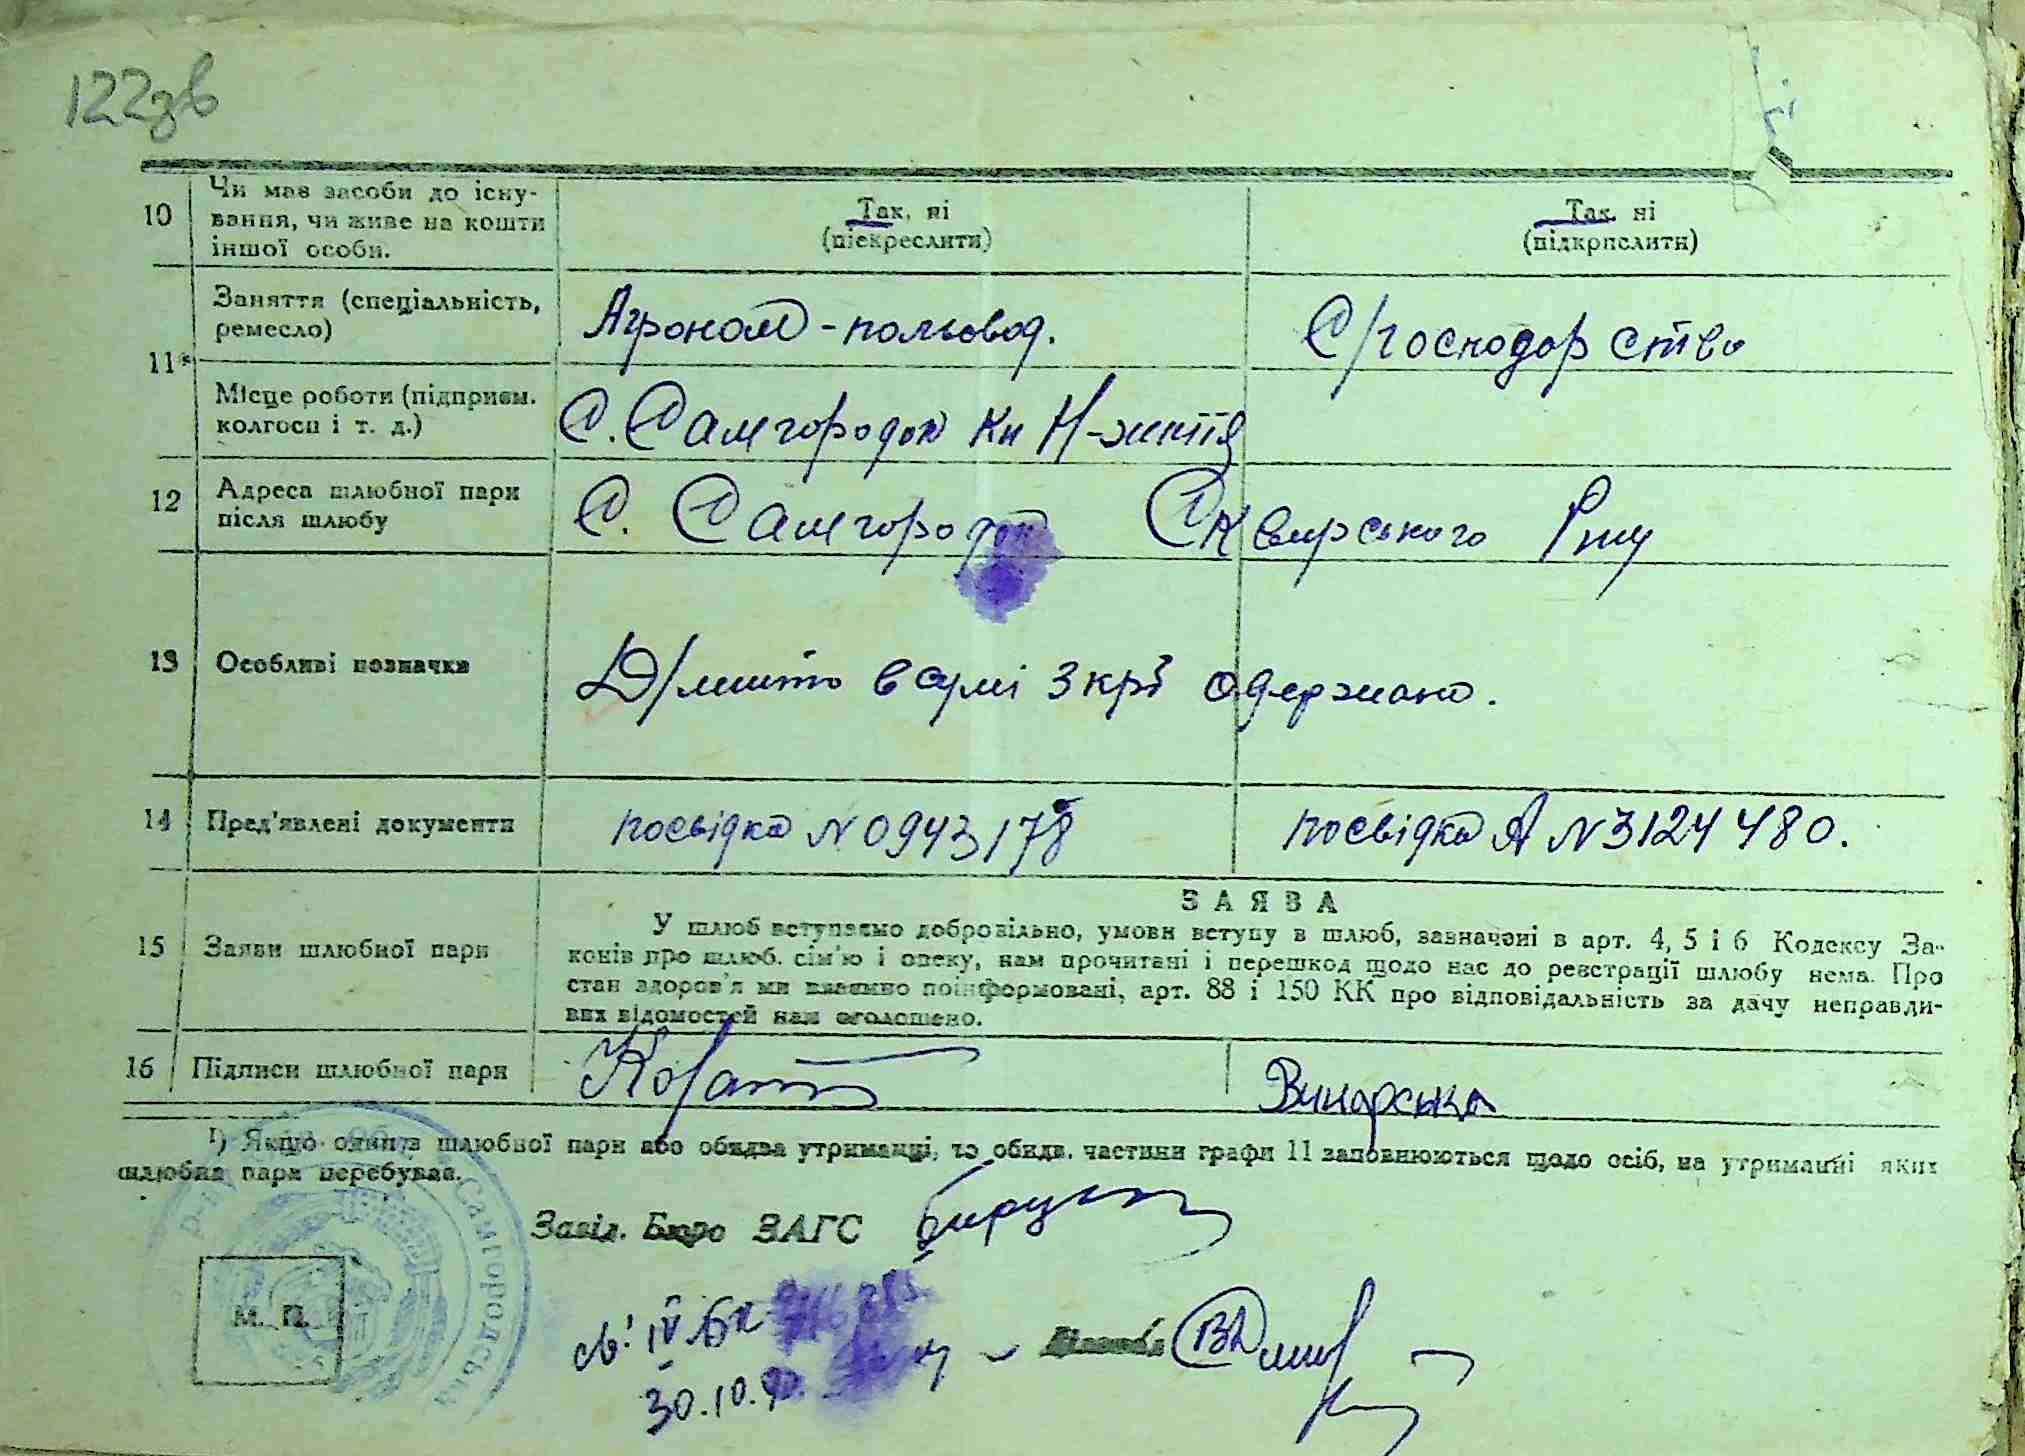 122зв
10 Чи має засоби до існу-
вання, чи живе на кошти
іншої особи.
Так, ні
(підкреслити)
Так, ні
(підкреслити)
11*
Заняття (спеціальність,
ремесло)
Агроном-польовод.
С/господарство
Місце роботи (підприєм.
колгосп і т. д.)
С. Самгородок Кн Н-життя
12 Адреса шлюбної пари
після шлюбу
С. Самгородок Сквирського Р-ну
13 Особливі позначки
Д/мито в сумі 3 крб одержано.
14 Пред'явлені документи
посвідка N 0943178
посвідка А N 3124480.
15 Заяви шлюбної пари
ЗАЯВА
У шлюб вступаємо добровільно, умови вступу в шлюб, зазначені в арт. 4, 5 і 6 Кодексу За-
конів про шлюб. сім'ю і опеку, нам прочитані і перешкод щодо нас до реєстрації шлюбу нема. Про
стан здоров'я ми взаємно поінформовані, арт. 88 і 150 КК про відповідальність за дачу неправди-
вих відомостей нам оголошено.
16 Підписи шлюбної пари
Винарська
1) Якщо один із шлюбної пари або обидва утриманці, то обидв. частини графи 11 заповнюються щодо осіб, на утриманні яких
шлюбна пара перебуває.
Завід. Бюро ЗАГС
Самгородська
М. П.
св! IV БК
30.10.